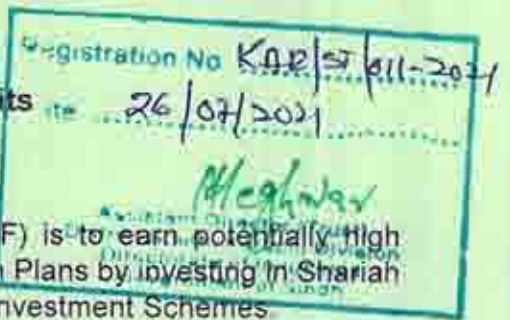 Registration No KAR/ST/011-2021
its
26/07/2021
F) is to earn potentially high
n Plans by investing in Shariah
nvestment Schemes.